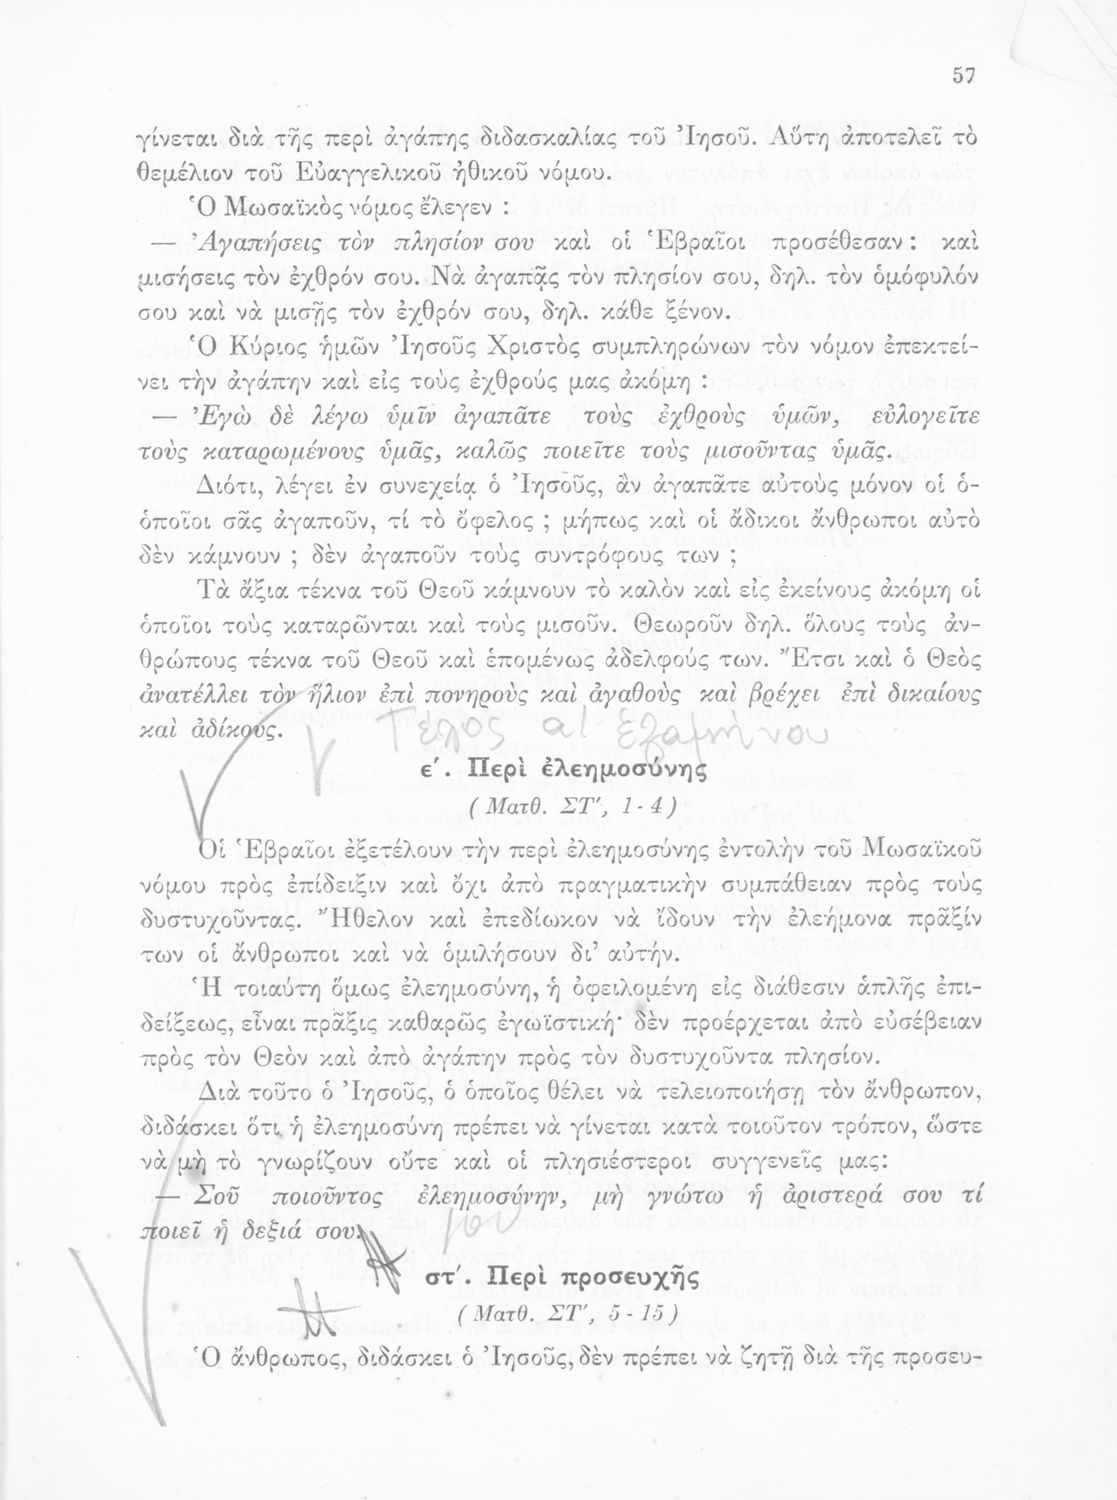 57
γίνεται διὰ τῆς περὶ ἀγάπης διδασκαλίας τοῦ Ἰησοῦ. Αὕτη ἀποτελεῖ τὸ
θεμέλιον τοῦ Εὐαγγελικοῦ ἠθικοῦ νόμου.
Ὁ Μωσαϊκὸς νόμος ἔλεγεν :
— Ἀγαπήσεις τὸν πλησίον σου καὶ οἱ Ἑβραῖοι προσέθεσαν : καὶ
μισήσεις τὸν ἐχθρόν σου. Νὰ ἀγαπᾷς τὸν πλησίον σου, δηλ. τὸν ὁμόφυλόν
σου καὶ νὰ μισῇς τὸν ἐχθρόν σου, δηλ. κάθε ξένον.
Ὁ Κύριος ἡμῶν Ἰησοῦς Χριστὸς συμπληρώνων τὸν νόμον ἐπεκτεί-
νει τὴν ἀγάπην καὶ εἰς τοὺς ἐχθρούς μας ἀκόμη :
— Ἐγὼ δὲ λέγω ὑμῖν ἀγαπᾶτε τοὺς ἐχθροὺς ὑμῶν, εὐλογεῖτε
τοὺς καταρωμένους ὑμᾶς, καλῶς ποιεῖτε τοὺς μισοῦντας ὑμᾶς.
Διότι, λέγει ἐν συνεχείᾳ ὁ Ἰησοῦς, ἂν ἀγαπᾶτε αὐτοὺς μόνον οἱ ὁ-
ὁποῖοι σᾶς ἀγαποῦν, τί τὸ ὄφελος ; μήπως καὶ οἱ ἄδικοι ἄνθρωποι αὐτὸ
δὲν κάμνουν ; δὲν ἀγαποῦν τοὺς συντρόφους των ;
Τὰ ἄξια τέκνα τοῦ Θεοῦ κάμνουν τὸ καλὸν καὶ εἰς ἐκείνους ἀκόμη οἱ
ὁποῖοι τοὺς καταρῶνται καὶ τοὺς μισοῦν. Θεωροῦν δηλ. ὅλους τοὺς ἀν-
θρώπους τέκνα τοῦ Θεοῦ καὶ ἑπομένως ἀδελφούς των. Ἔτσι καὶ ὁ Θεὸς
ἀνατέλλει τὸν ἥλιον ἐπὶ πονηροὺς καὶ ἀγαθοὺς καὶ βρέχει ἐπὶ δικαίους
καὶ ἀδίκους.
Τέλος α! ἑξαμήνου
ε΄. Περὶ ἐλεημοσύνης
(Ματθ. ΣΤ΄, 1-4)
Οἱ Ἑβραῖοι ἐξετέλουν τὴν περὶ ἐλεημοσύνης ἐντολὴν τοῦ Μωσαϊκοῦ
νόμου πρὸς ἐπίδειξιν καὶ ὄχι ἀπὸ πραγματικὴν συμπάθειαν πρὸς τοὺς
δυστυχοῦντας. Ἤθελον καὶ ἐπεδίωκον νὰ ἴδουν τὴν ἐλεήμονα πρᾶξίν
των οἱ ἄνθρωποι καὶ νὰ ὁμιλήσουν δι’ αὐτήν.
Ἡ τοιαύτη ὅμως ἐλεημοσύνη, ἡ ὀφειλομένη εἰς διάθεσιν ἁπλῆς ἐπι-
δείξεως, εἶναι πρᾶξις καθαρῶς ἐγωϊστική· δὲν προέρχεται ἀπὸ εὐσέβειαν
πρὸς τὸν Θεὸν καὶ ἀπὸ ἀγάπην πρὸς τὸν δυστυχοῦντα πλησίον.
Διὰ τοῦτο ὁ Ἰησοῦς, ὁ ὁποῖος θέλει νὰ τελειοποιήσῃ τὸν ἄνθρωπον,
διδάσκει ὅτι ἡ ἐλεημοσύνη πρέπει νὰ γίνεται κατὰ τοιοῦτον τρόπον, ὥστε
νὰ μὴ τὸ γνωρίζουν οὔτε καὶ οἱ πλησιέστεροι συγγενεῖς μας:
— Σοῦ ποιοῦντος ἐλεημοσύνην, μὴ γνώτω ἡ ἀριστερά σου τί
ποιεῖ ἡ δεξιά σου.
μου
στ΄. Περὶ προσευχῆς
(Ματθ. ΣΤ΄, 5-15)
Ὁ ἄνθρωπος, διδάσκει ὁ Ἰησοῦς, δὲν πρέπει νὰ ζητῇ διὰ τῆς προσευ-